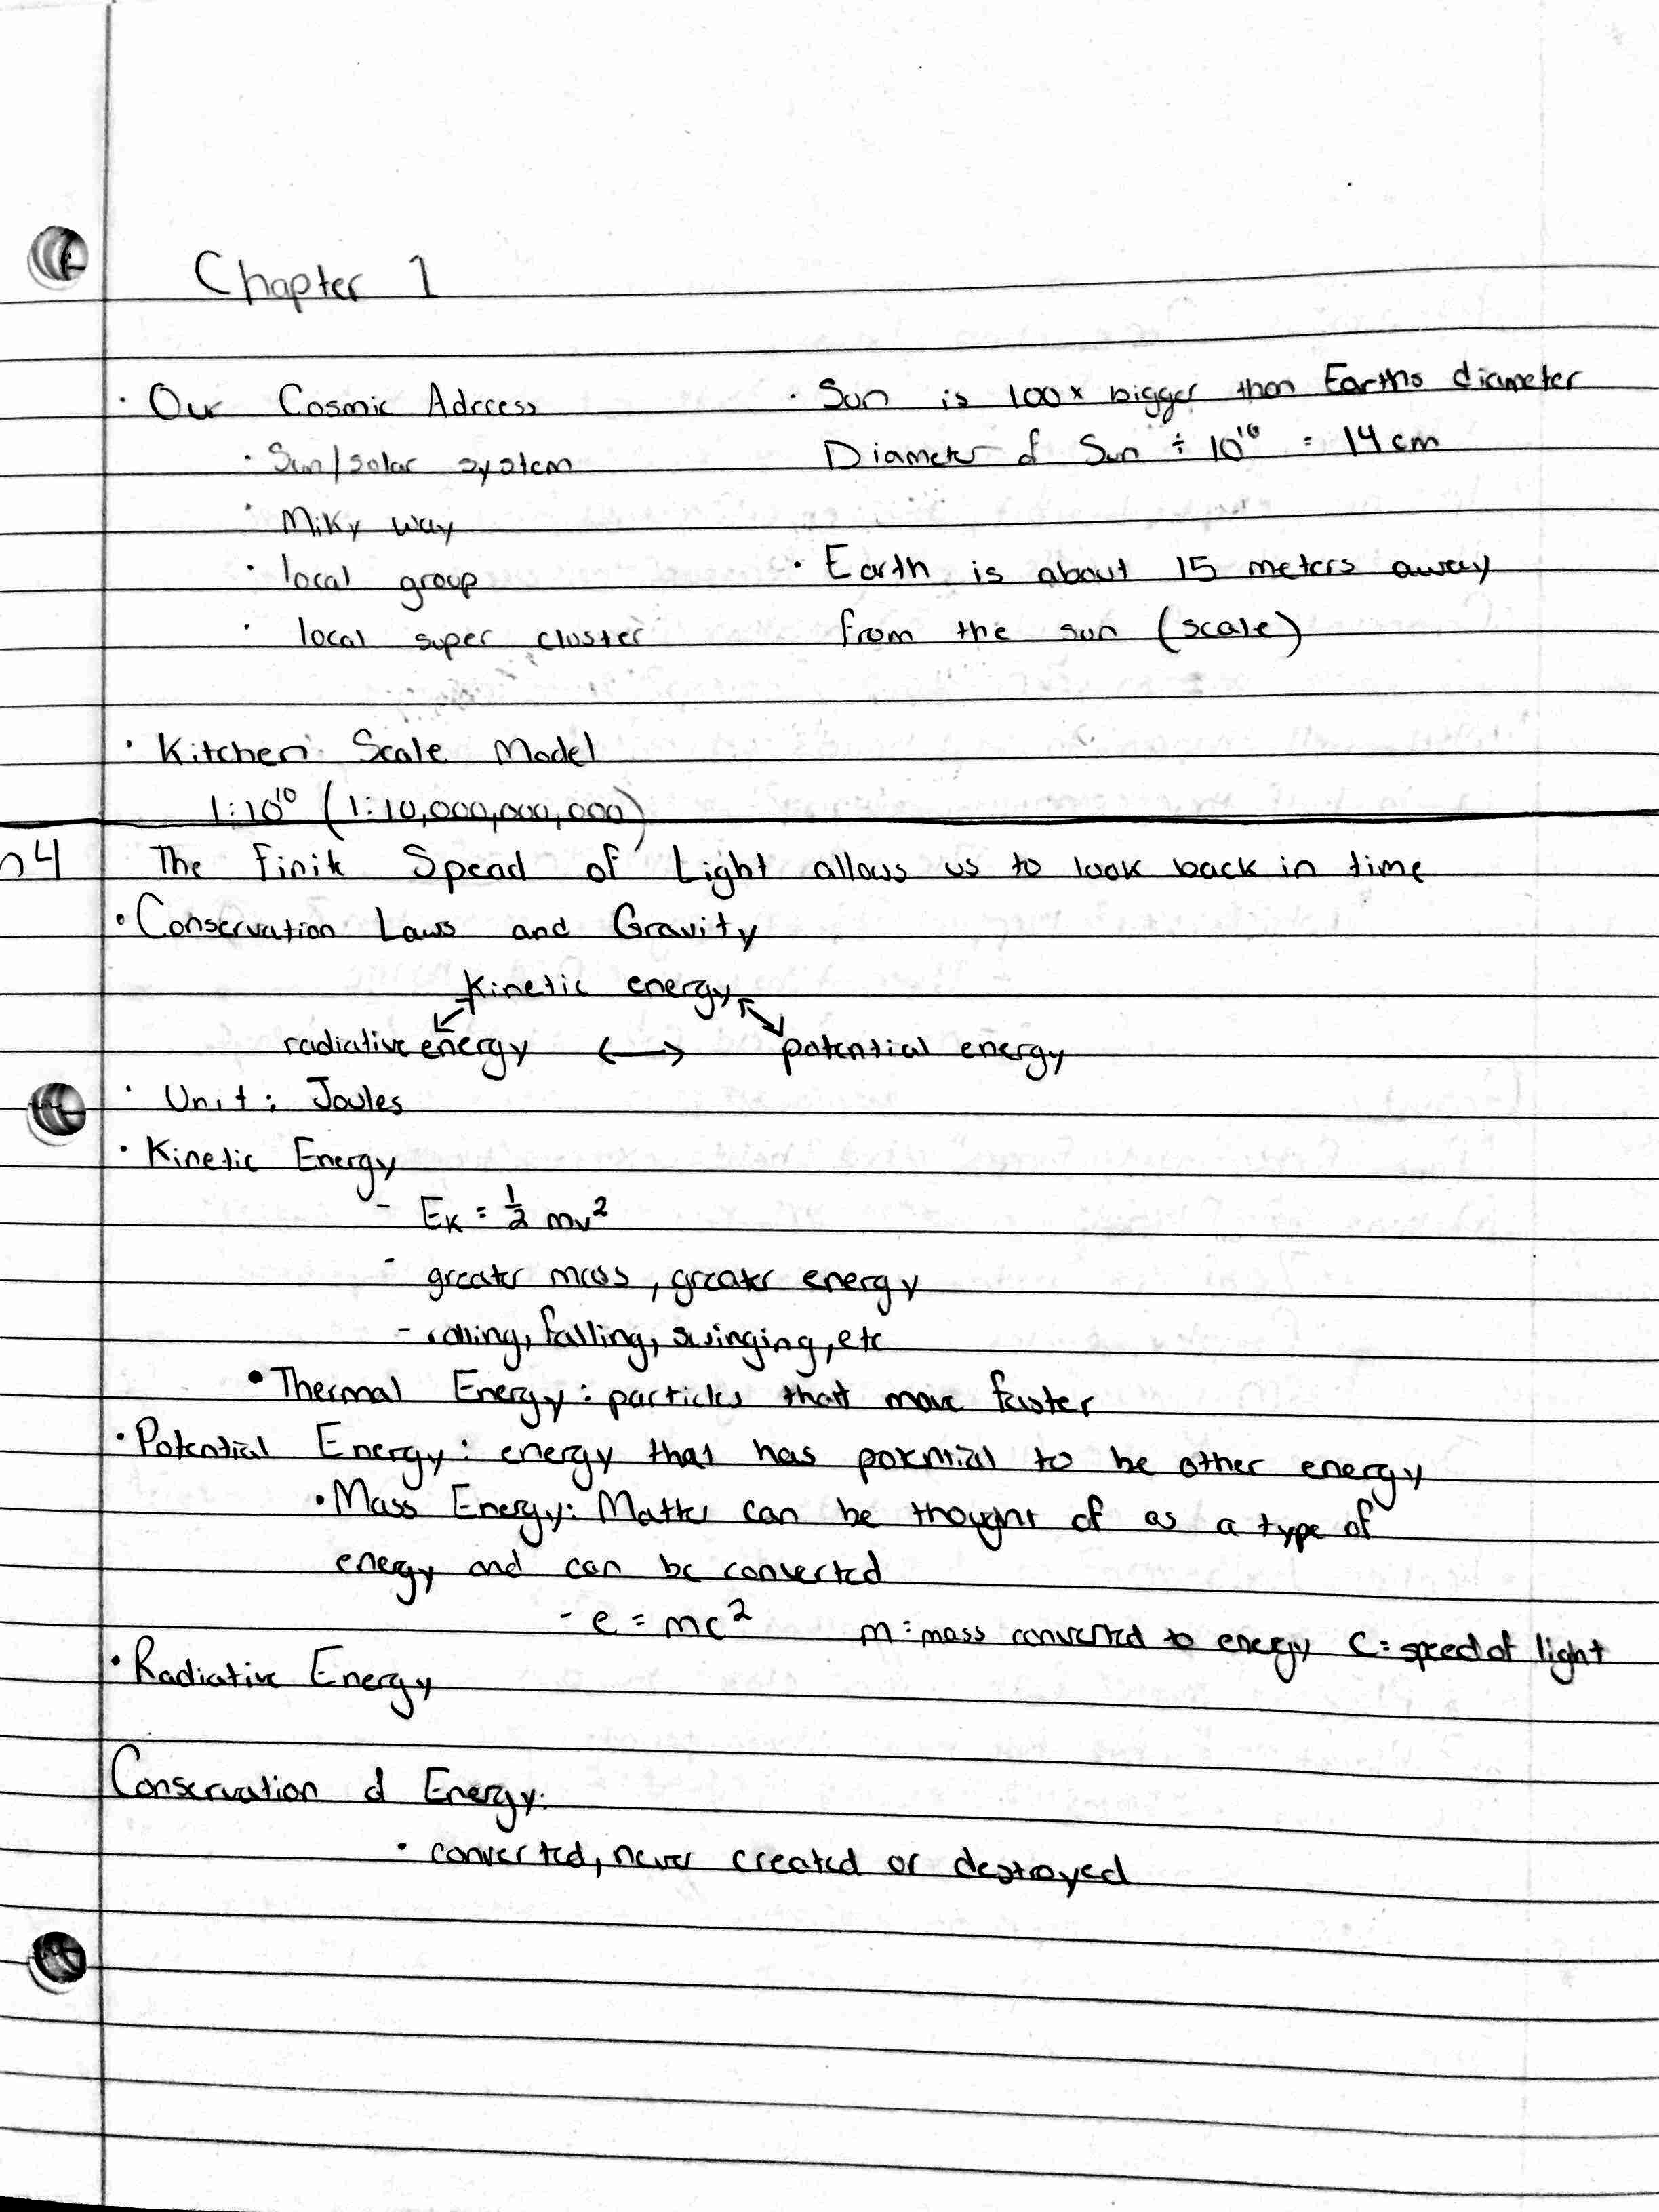 Chapter 1
· Our Cosmic Adress
· Sun/solar system
· Miky way
· local group
· local super cluster
· Kitchen Scale Model
1:10¹⁰ (1:10,000,000,000)
· Sun is 100x bigger than Earths diameter
Diameter of Sun ÷ 10¹⁰ = 14 cm
· Earth is about 15 meters away
from the sun (scale)
4 The Finite Spead of Light allows us to look back in time
· Conservation Laws and Gravity
Kinetic energy
radiative energy ⟷ potential energy
· Unit: Joules
· Kinetic Energy
- Eₖ = ½ mv²
- greater mass, greater energy
- rolling, falling, swinging, etc
• Thermal Energy: particles that move faster
· Potential Energy: energy that has potential to be other energy
• Mass Energy: Matter can be thought of as a type of
energy and can be converted
- e = mc² m = mass converted to energy C = speed of light
· Radiative Energy
Conservation of Energy:
· converted, never created or destroyed